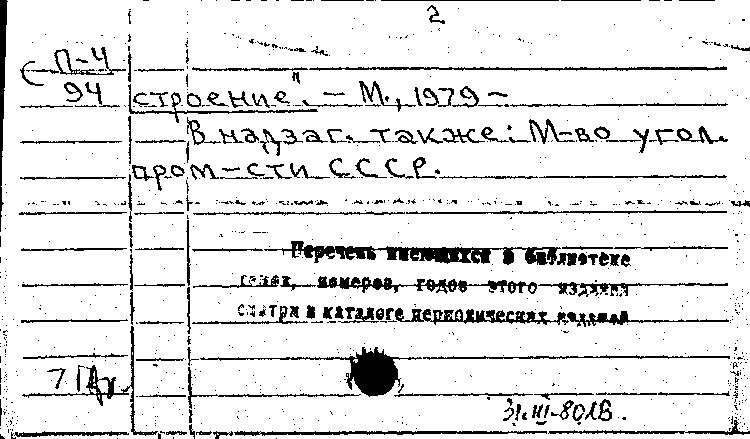 2
С П-4
94
строение". – М., 1979 –
В надзаг. также: М-во угол.
пром-сти СССР.
Перечень имеющихся в библиотеке
томов, номеров, годов этого издания
смотри в каталоге периодических изданий
71
31.III-80